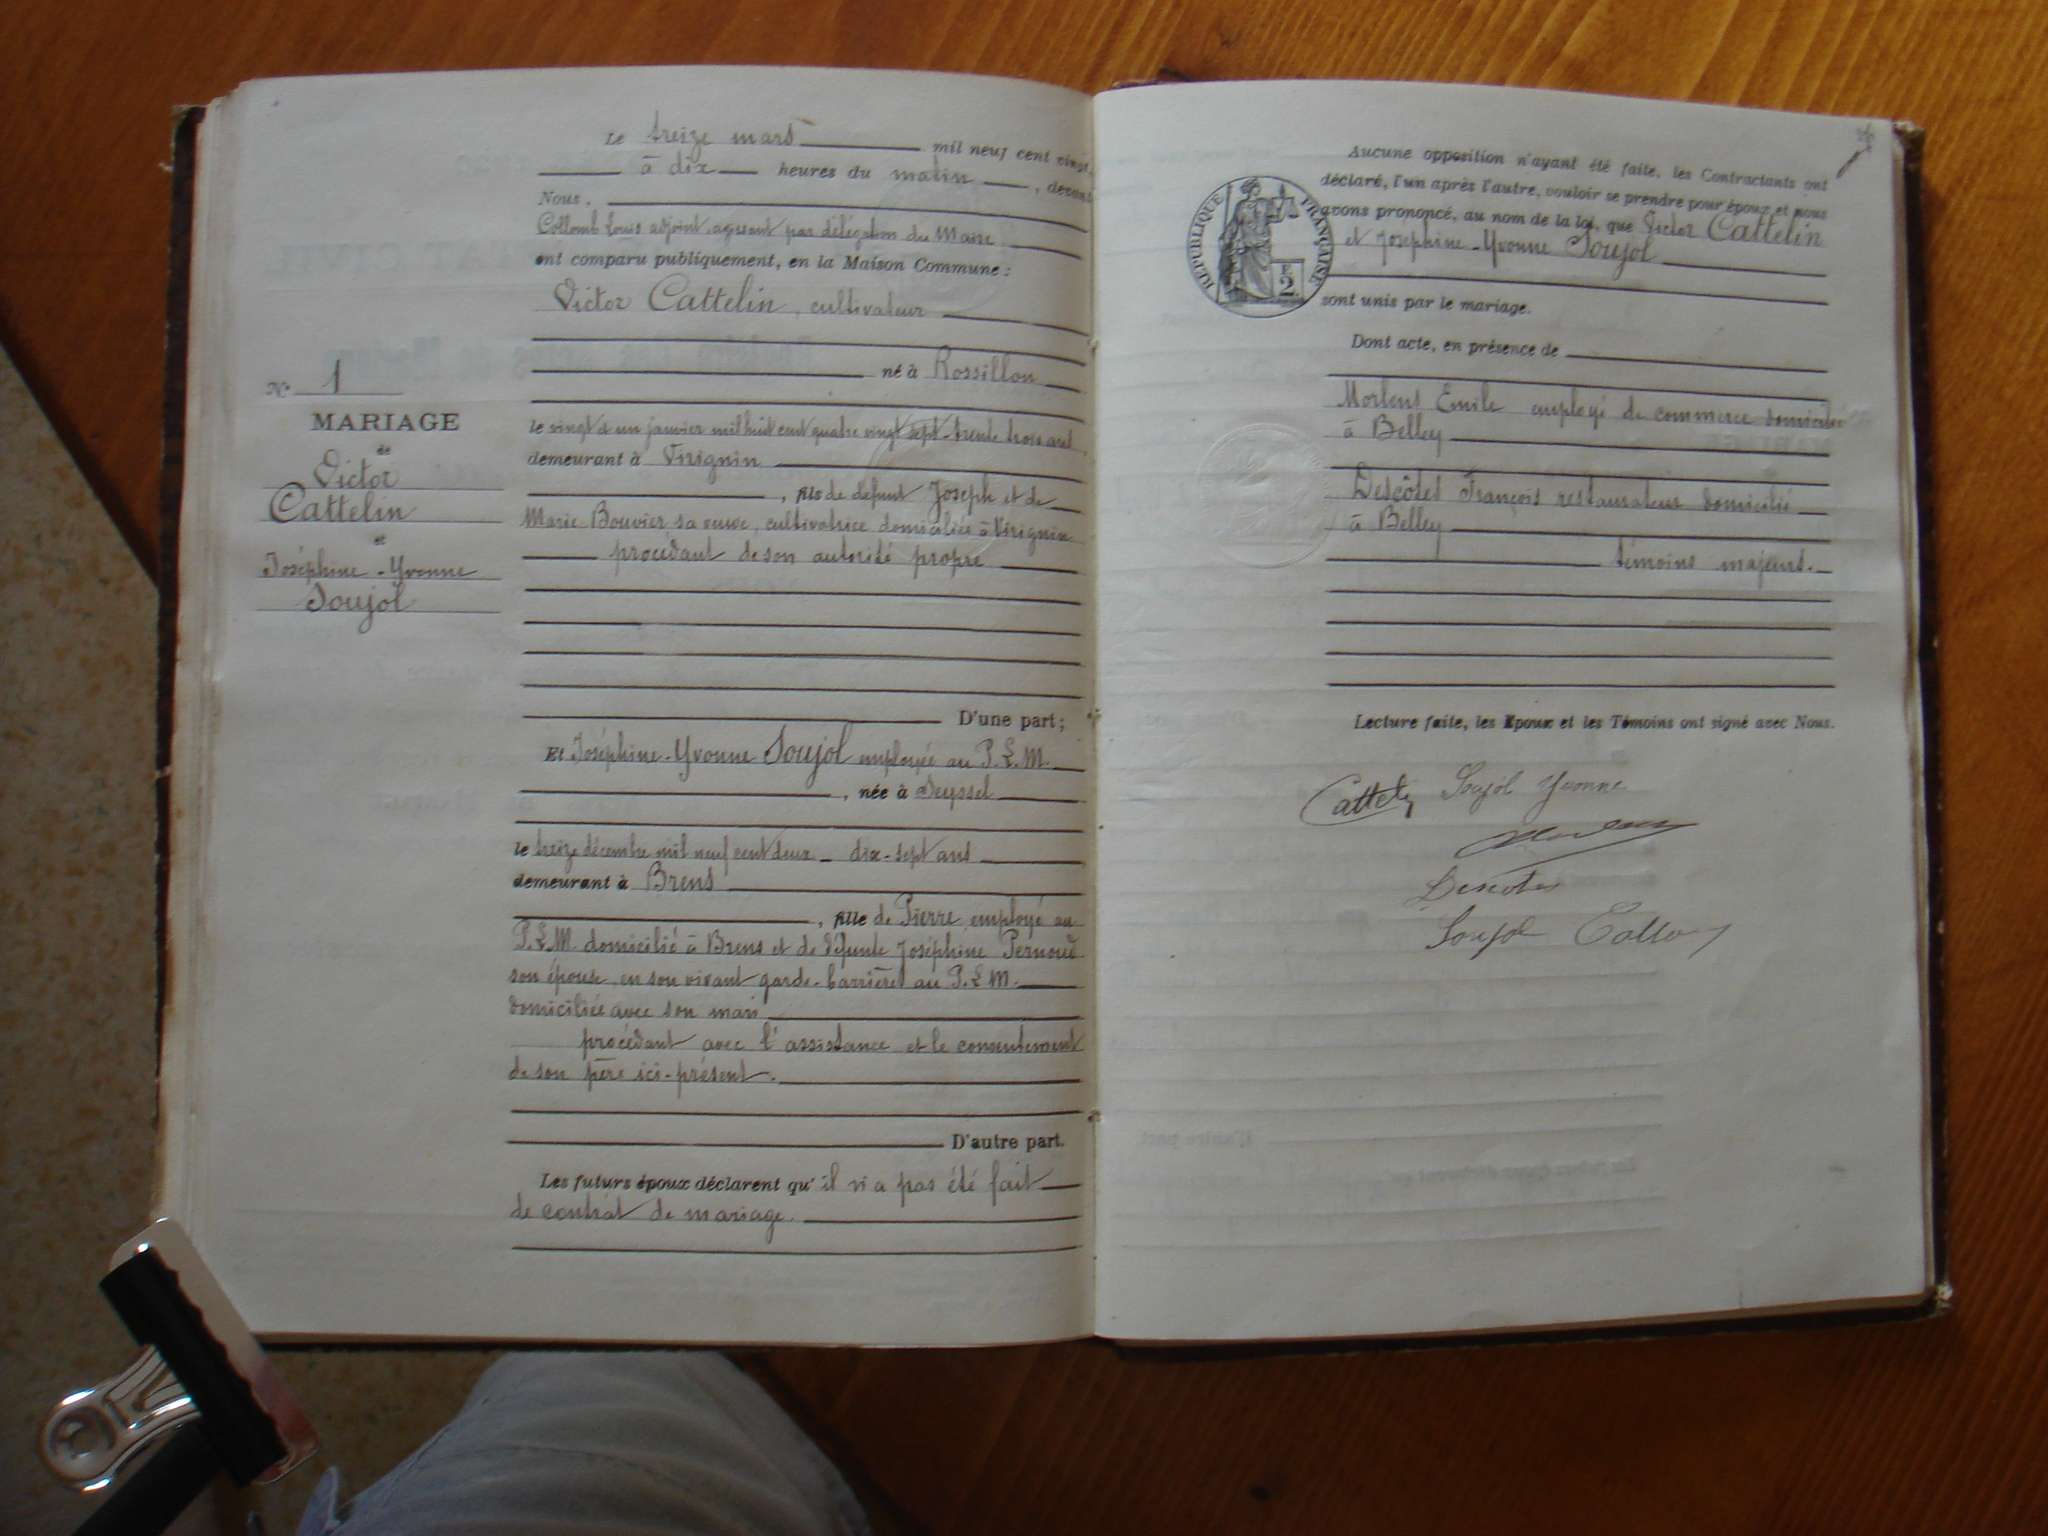 Le treize mars mil neuf cent vingt,
à dix heures du matin, devant
Nous,
Collomb Louis adjoint, agissant par délégation du Maire
ont comparu publiquement, en la Maison Commune :
Victor Cattelin, cultivateur
né à Rossillon
le vingt et un janvier mil huit cent quatre vingt sept - trente trois ans
demeurant à Virignin
, fils de défunt Joseph et de
Marie Bouvier sa veuve, cultivatrice domiciliée à Virignin
procédant de son autorité propre
N° 1
MARIAGE
de
Victor
Cattelin
et
Joséphine-Yvonne
Soujol
D'une part;
Et Joséphine-Yvonne Soujol employée au P.L.M.
, née à Seyssel
le treize décembre mil neuf cent deux - dix-sept ans
demeurant à Brens
, fille de Pierre, employé au
P.L.M. domicilié à Brens et de défunte Joséphine Pernoud
son épouse, en son vivant garde-barrière au P.L.M.
domiciliée avec son mari
procédant avec l'assistance et le consentement
de son père ici-présent.
D'autre part.
Les futurs époux déclarent qu'il n'a pas été fait
de contrat de mariage.
Aucune opposition n'ayant été faite, les Contractants ont
déclaré, l'un après l'autre, vouloir se prendre pour époux et nous
avons prononcé, au nom de la loi, que Victor Cattelin
et Joséphine-Yvonne Soujol
sont unis par le mariage.
RÉPUBLIQUE FRANÇAISE
2
Dont acte, en présence de
Morlens Emile employé de commerce domicilié
à Belley
Descôtes François restaurateur domicilié
à Belley
témoins majeurs.
Lecture faite, les Epoux et les Témoins ont signé avec Nous.
Cattelin Soujol Yvonne
Descotes
Soujol